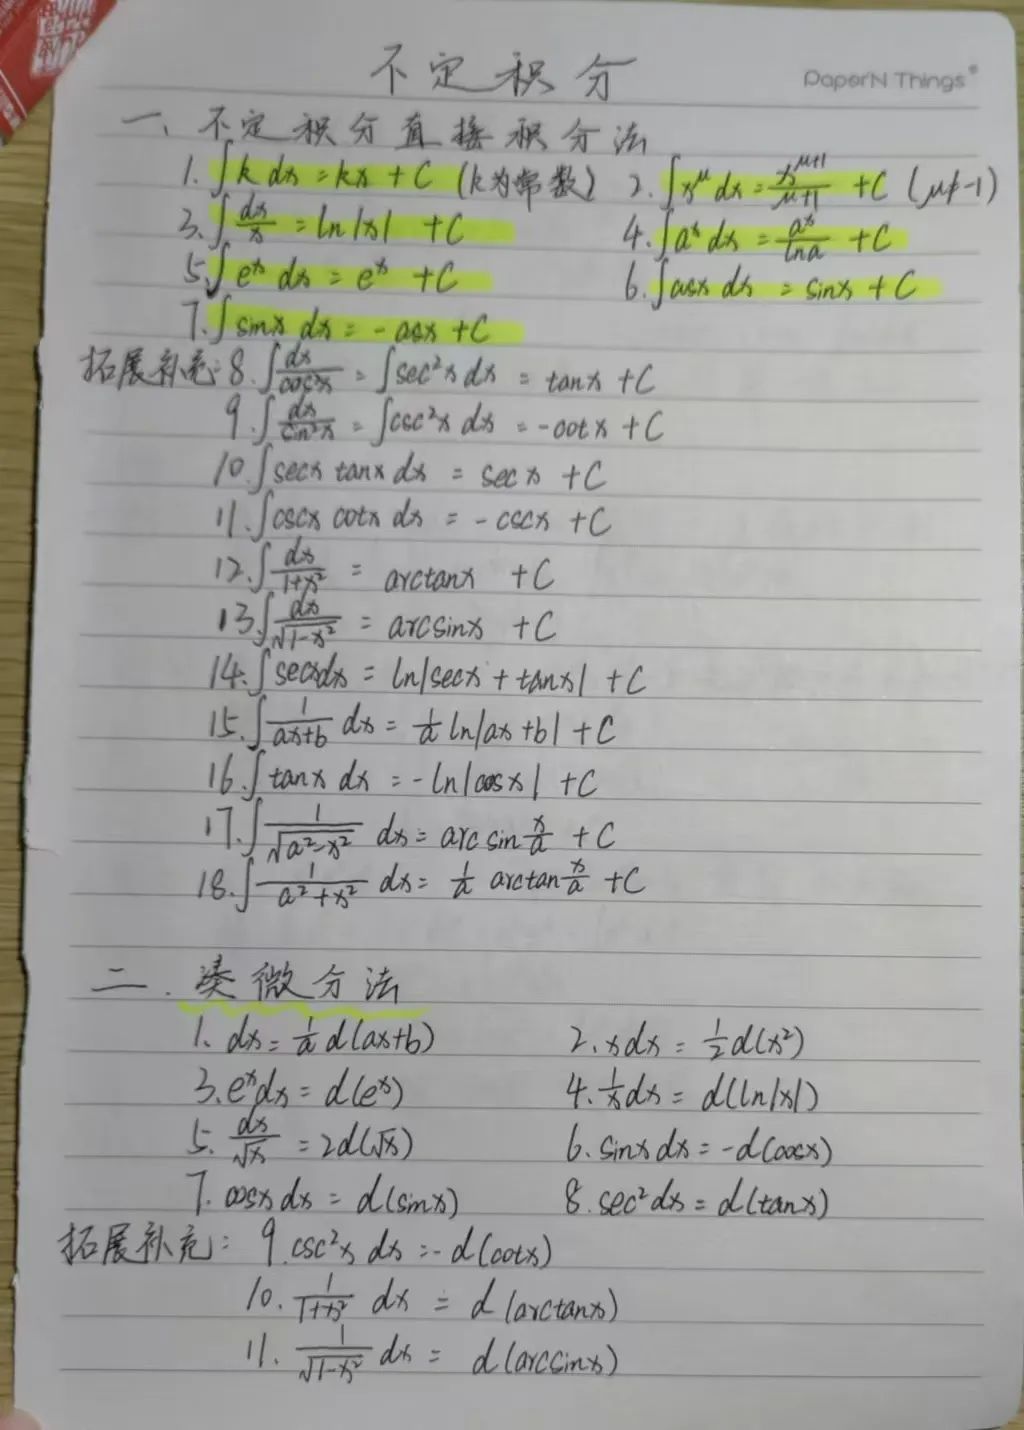 不定积分
PaperN Things®
一、不定积分直接积分法
1. ∫k dx = kx + C (k为常数) 2. ∫x^μ dx = x^(μ+1)/(μ+1) + C (μ≠-1)
3. ∫dx/x = ln|x| + C 4. ∫a^x dx = a^x/lna + C
5. ∫e^x dx = e^x + C 6. ∫cosx dx = sinx + C
7. ∫sinx dx = -cosx + C
拓展补充: 8. ∫dx/cos²x = ∫sec²x dx = tanx + C
9. ∫dx/sin²x = ∫csc²x dx = -cotx + C
10. ∫secx tanx dx = secx + C
11. ∫cscx cotx dx = -cscx + C
12. ∫dx/(1+x²) = arctanx + C
13. ∫dx/√(1-x²) = arcsinx + C
14. ∫secxdx = ln|secx + tanx| + C
15. ∫1/(ax+b) dx = 1/a ln|ax+b| + C
16. ∫tanx dx = -ln|cosx| + C
17. ∫1/√(a²-x²) dx = arcsin x/a + C
18. ∫1/(a²+x²) dx = 1/a arctan x/a + C
二. 凑微分法
1. dx = 1/a d(ax+b) 2. xdx = 1/2 d(x²)
3. e^x dx = d(e^x) 4. 1/x dx = d(ln|x|)
5. dx/√x = 2d(√x) 6. sinx dx = -d(cosx)
7. cosx dx = d(sinx) 8. sec² dx = d(tanx)
拓展补充: 9. csc²x dx = -d(cotx)
10. 1/(1+x²) dx = d(arctanx)
11. 1/√(1-x²) dx = d(arcsinx)